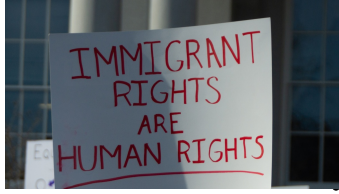 IMMIGRANT
RIGHTS
ARE
HUMAN RIGHTS